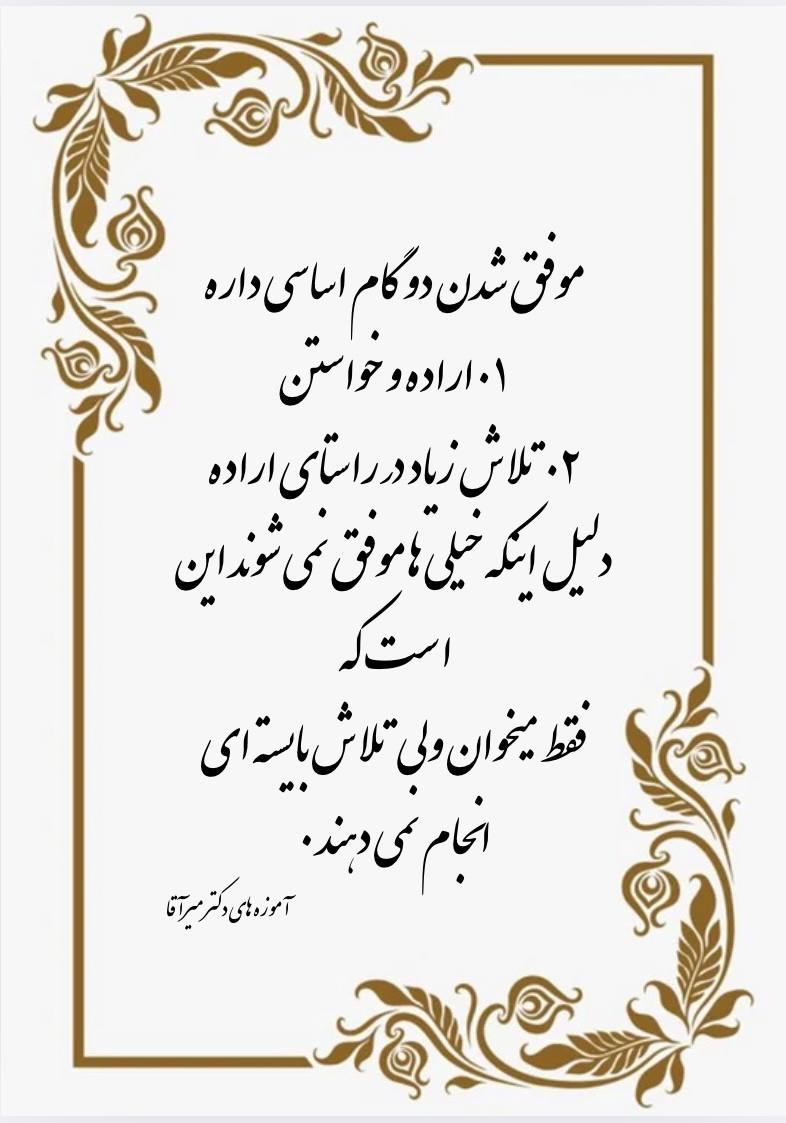 موفق شدن دو گام اساسی داره
۰۱ اراده و خواستن
۰۲ تلاش زیاد در راستای اراده
دلیل اینکه خیلی ها موفق نمی شوند این
است که
فقط میخوان ولی تلاش بایسته ای
انجام نمی دهند.
آموزه های دکتر میرآقا